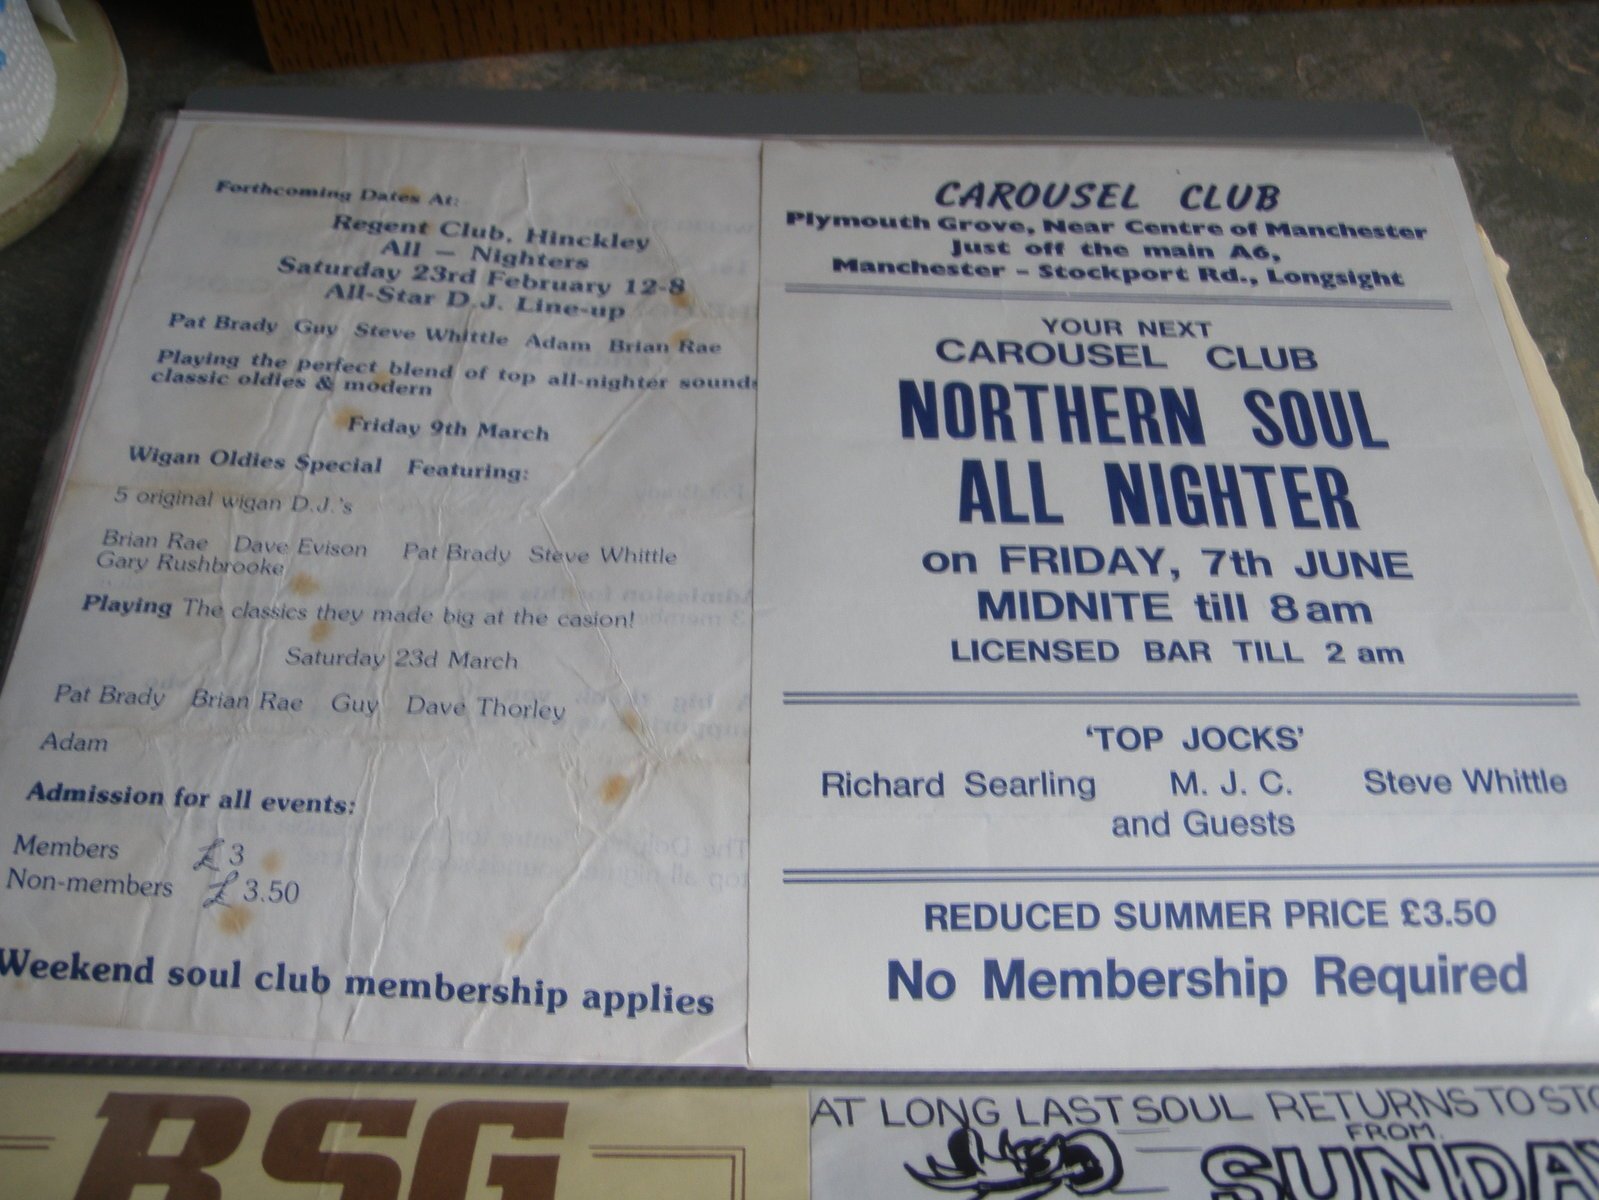 Forthcoming Dates At:
Regent Club, Hinckley
All – Nighters
Saturday 23rd February 12-8
All-Star D.J. Line-up
Pat Brady Guy Steve Whittle Adam Brian Rae
Playing the perfect blend of top all-nighter sounds
classic oldies & modern
Friday 9th March
Wigan Oldies Special Featuring:
5 original wigan D.J.'s
Brian Rae Dave Evison Pat Brady Steve Whittle
Gary Rushbrooke
Playing The classics they made big at the casion!
Saturday 23d March
Pat Brady Brian Rae Guy Dave Thorley
Adam
Admission for all events:
Members £3
Non-members £3.50
Weekend soul club membership applies
CAROUSEL CLUB
Plymouth Grove, Near Centre of Manchester
Just off the main A6,
Manchester – Stockport Rd., Longsight
YOUR NEXT
CAROUSEL CLUB
NORTHERN SOUL
ALL NIGHTER
on FRIDAY, 7th JUNE
MIDNITE till 8am
LICENSED BAR TILL 2 am
'TOP JOCKS'
Richard Searling M. J. C. Steve Whittle
and Guests
REDUCED SUMMER PRICE £3.50
No Membership Required
BSG
AT LONG LAST SOUL RETURNS TO STO
FROM.
SUNDAY